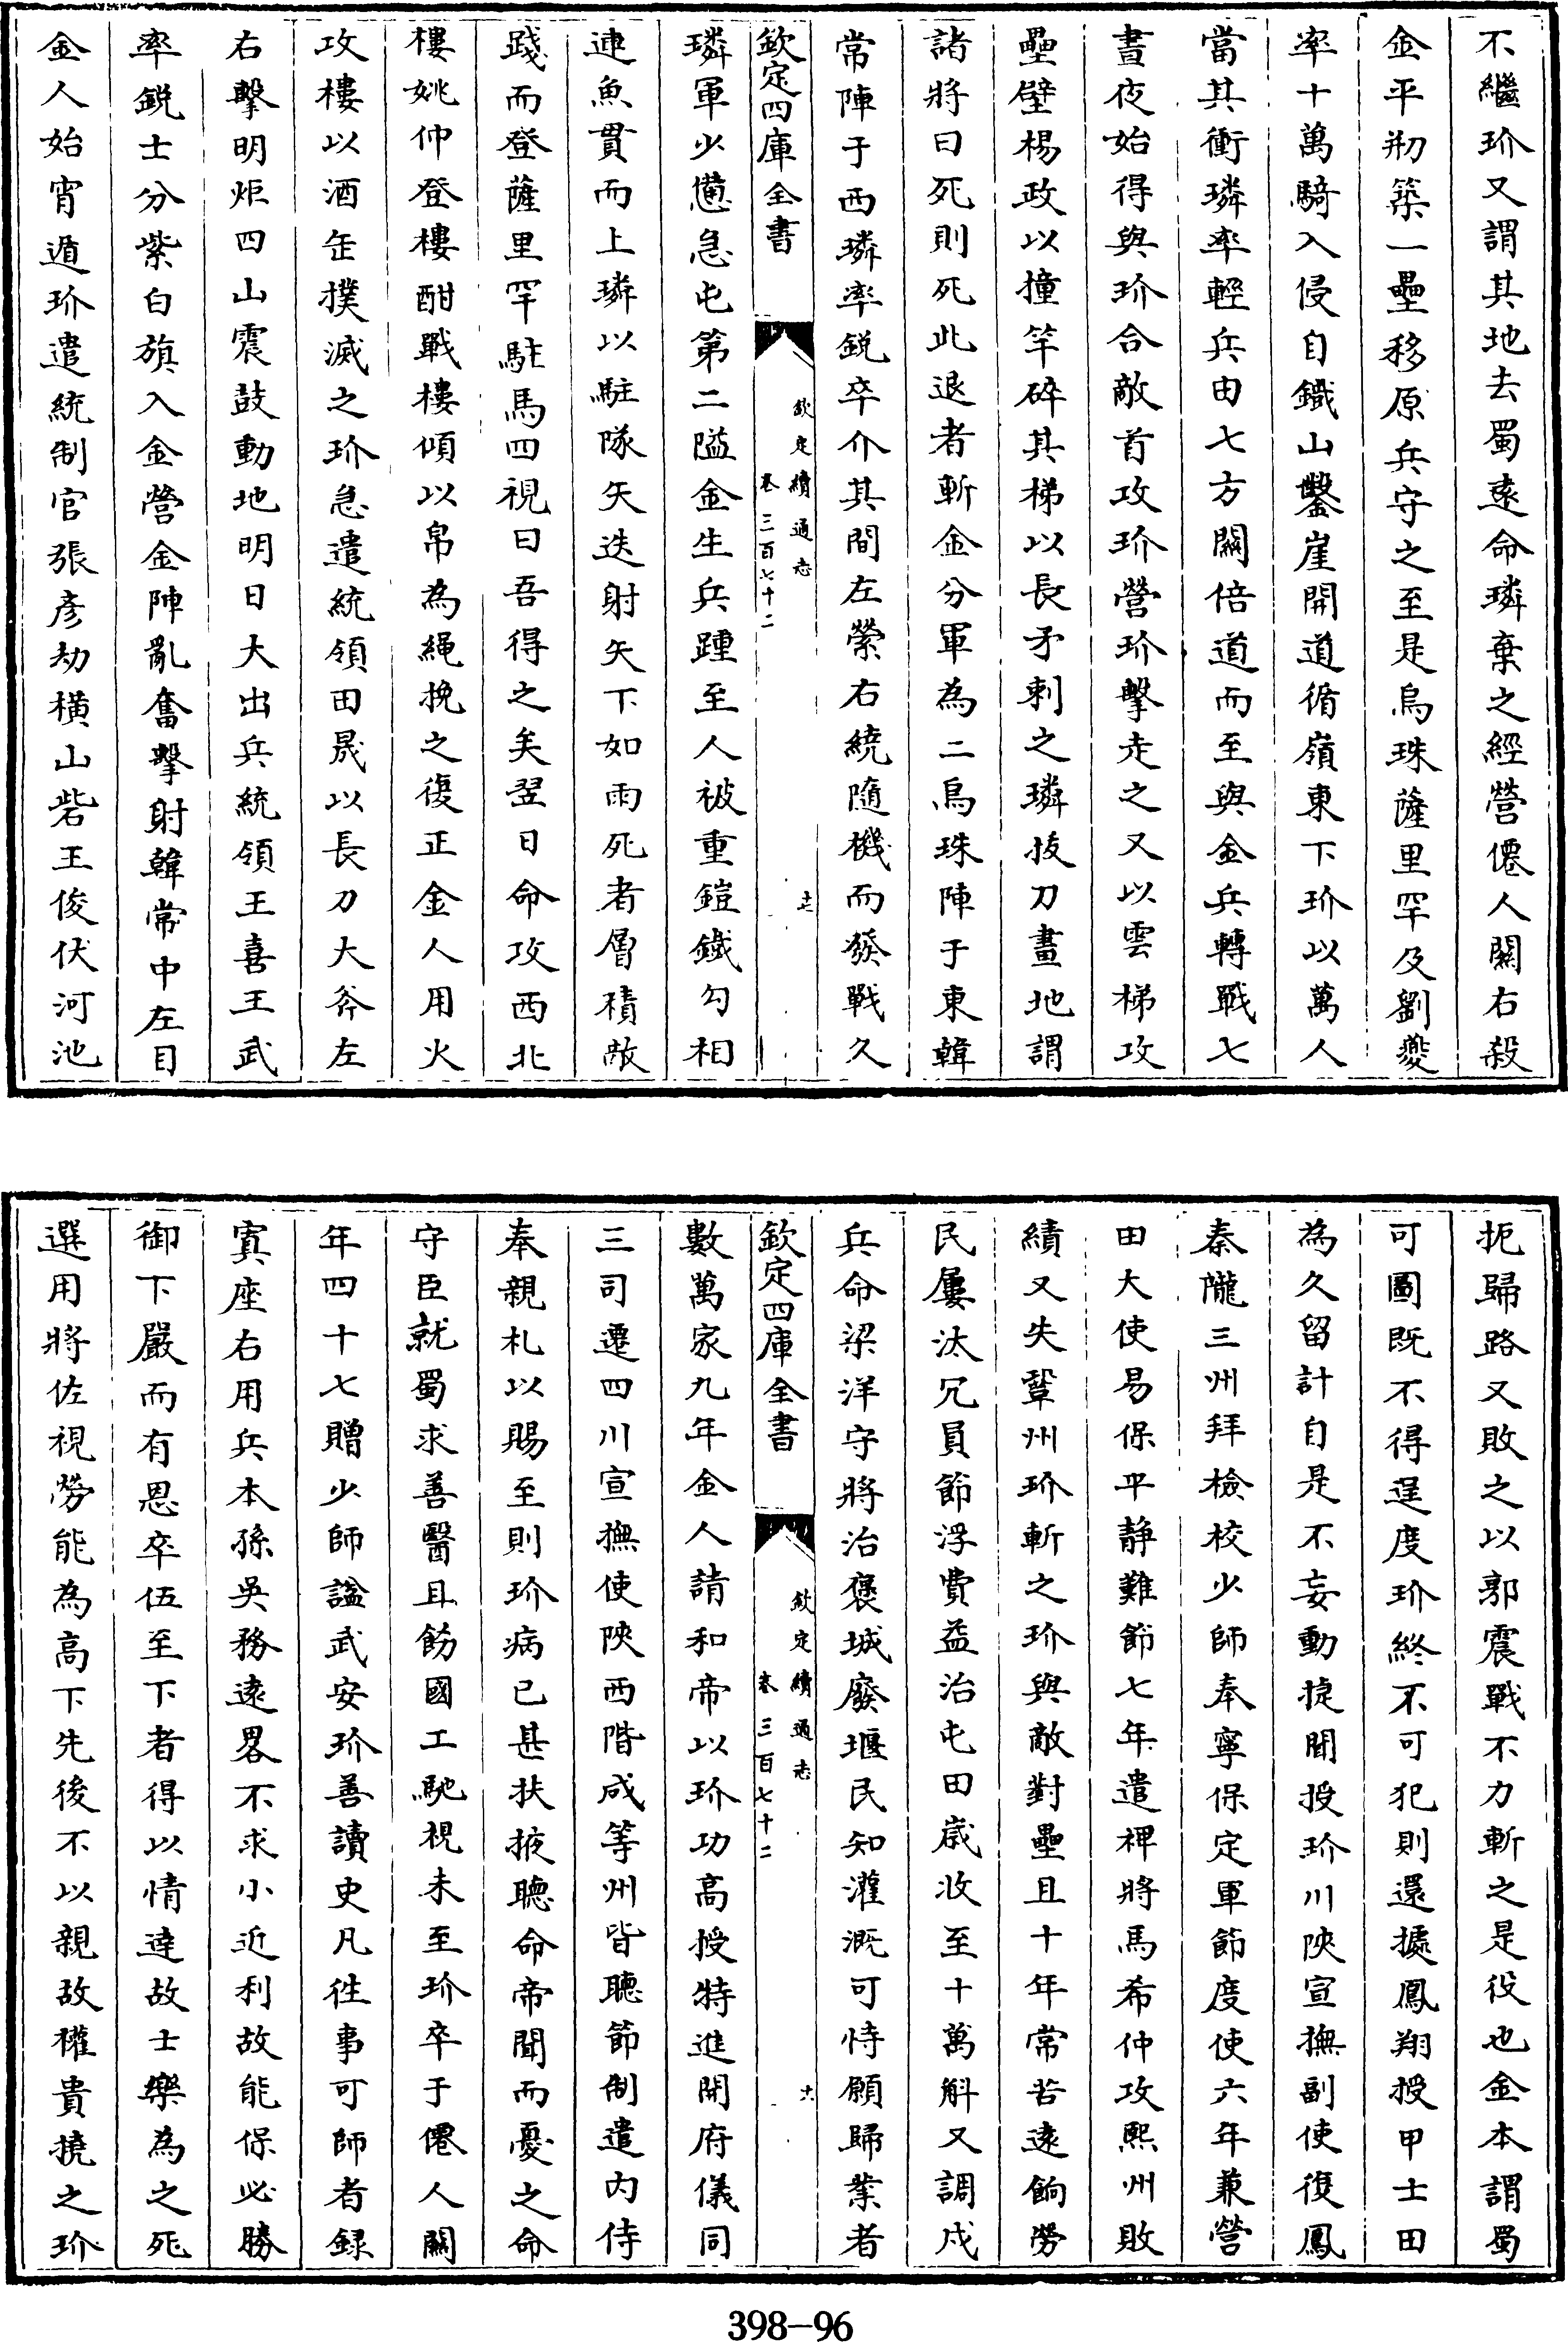 不繼玠又謂其地去蜀逺命璘棄之經營僊人闗右殺
金平剏築一壘移原兵守之至是烏珠薩里罕及劉夔
率十萬騎入侵自鐵山鑿崖開道循嶺東下玠以萬人
當其衝璘率輕兵由七方闗倍道而至與金兵轉戰七
晝夜始得與玠合敵首攻玠營玠擊走之又以雲梯攻
壘壁楊政以撞竿碎其梯以長矛刺之璘拔刀畫地謂
諸將曰死則死此退者斬金分軍為二烏珠陣于東韓
常陣于西璘率鋭卒介其間左縈右繞隨機而發戰久
欽定四庫全書
欽定續通志
卷三百七十二
十七
璘軍少憊急屯第二隘金生兵踵至人被重鎧鐵勾相
連魚貫而上璘以駐隊矢迭射矢下如雨死者層積敵
踐而登薩里罕駐馬四視曰吾得之矣翌日命攻西北
樓姚仲登樓酣戰樓傾以帛為繩挽之復正金人用火
攻樓以酒缶撲滅之玠急遣統領田晟以長刀大斧左
右擊明炬四山震鼓動地明日大出兵統領王喜王武
率鋭士分紫白旗入金營金陣亂奮擊射韓常中左目
金人始宵遁玠遣統制官張彦劫横山砦王俊伏河池
扼歸路又敗之以郭震戰不力斬之是役也金本謂蜀
可圖既不得逞度玠終不可犯則還據鳳翔授甲士田
為久留計自是不妄動捷聞授玠川陜宣撫副使復鳳
秦隴三州拜檢校少師奉寧保定軍節度使六年兼營
田大使易保平静難節七年遣禆將馬希仲攻熙州敗
績又失鞏州玠斬之玠與敵對壘且十年常苦逺餉勞
民屢汰冗員節浮費益治屯田歲收至十萬斛又調戍
兵命梁洋守將治褒城廢堰民知灌溉可恃願歸業者
欽定四庫全書
欽定續通志
卷三百七十二
十八
數萬家九年金人請和帝以玠功高授特進開府儀同
三司遷四川宣撫使陜西階成等州皆聽節制遣内侍
奉親札以賜至則玠病已甚扶掖聽命帝聞而憂之命
守臣就蜀求善醫且飭國工馳視未至玠卒于僊人闗
年四十七贈少師諡武安玠善讀史凡徃事可師者録
寘座右用兵本孫吳務逺畧不求小近利故能保必勝
御下嚴而有恩卒伍至下者得以情達故士樂為之死
選用將佐視勞能為高下先後不以親故權貴撓之玠
398-96